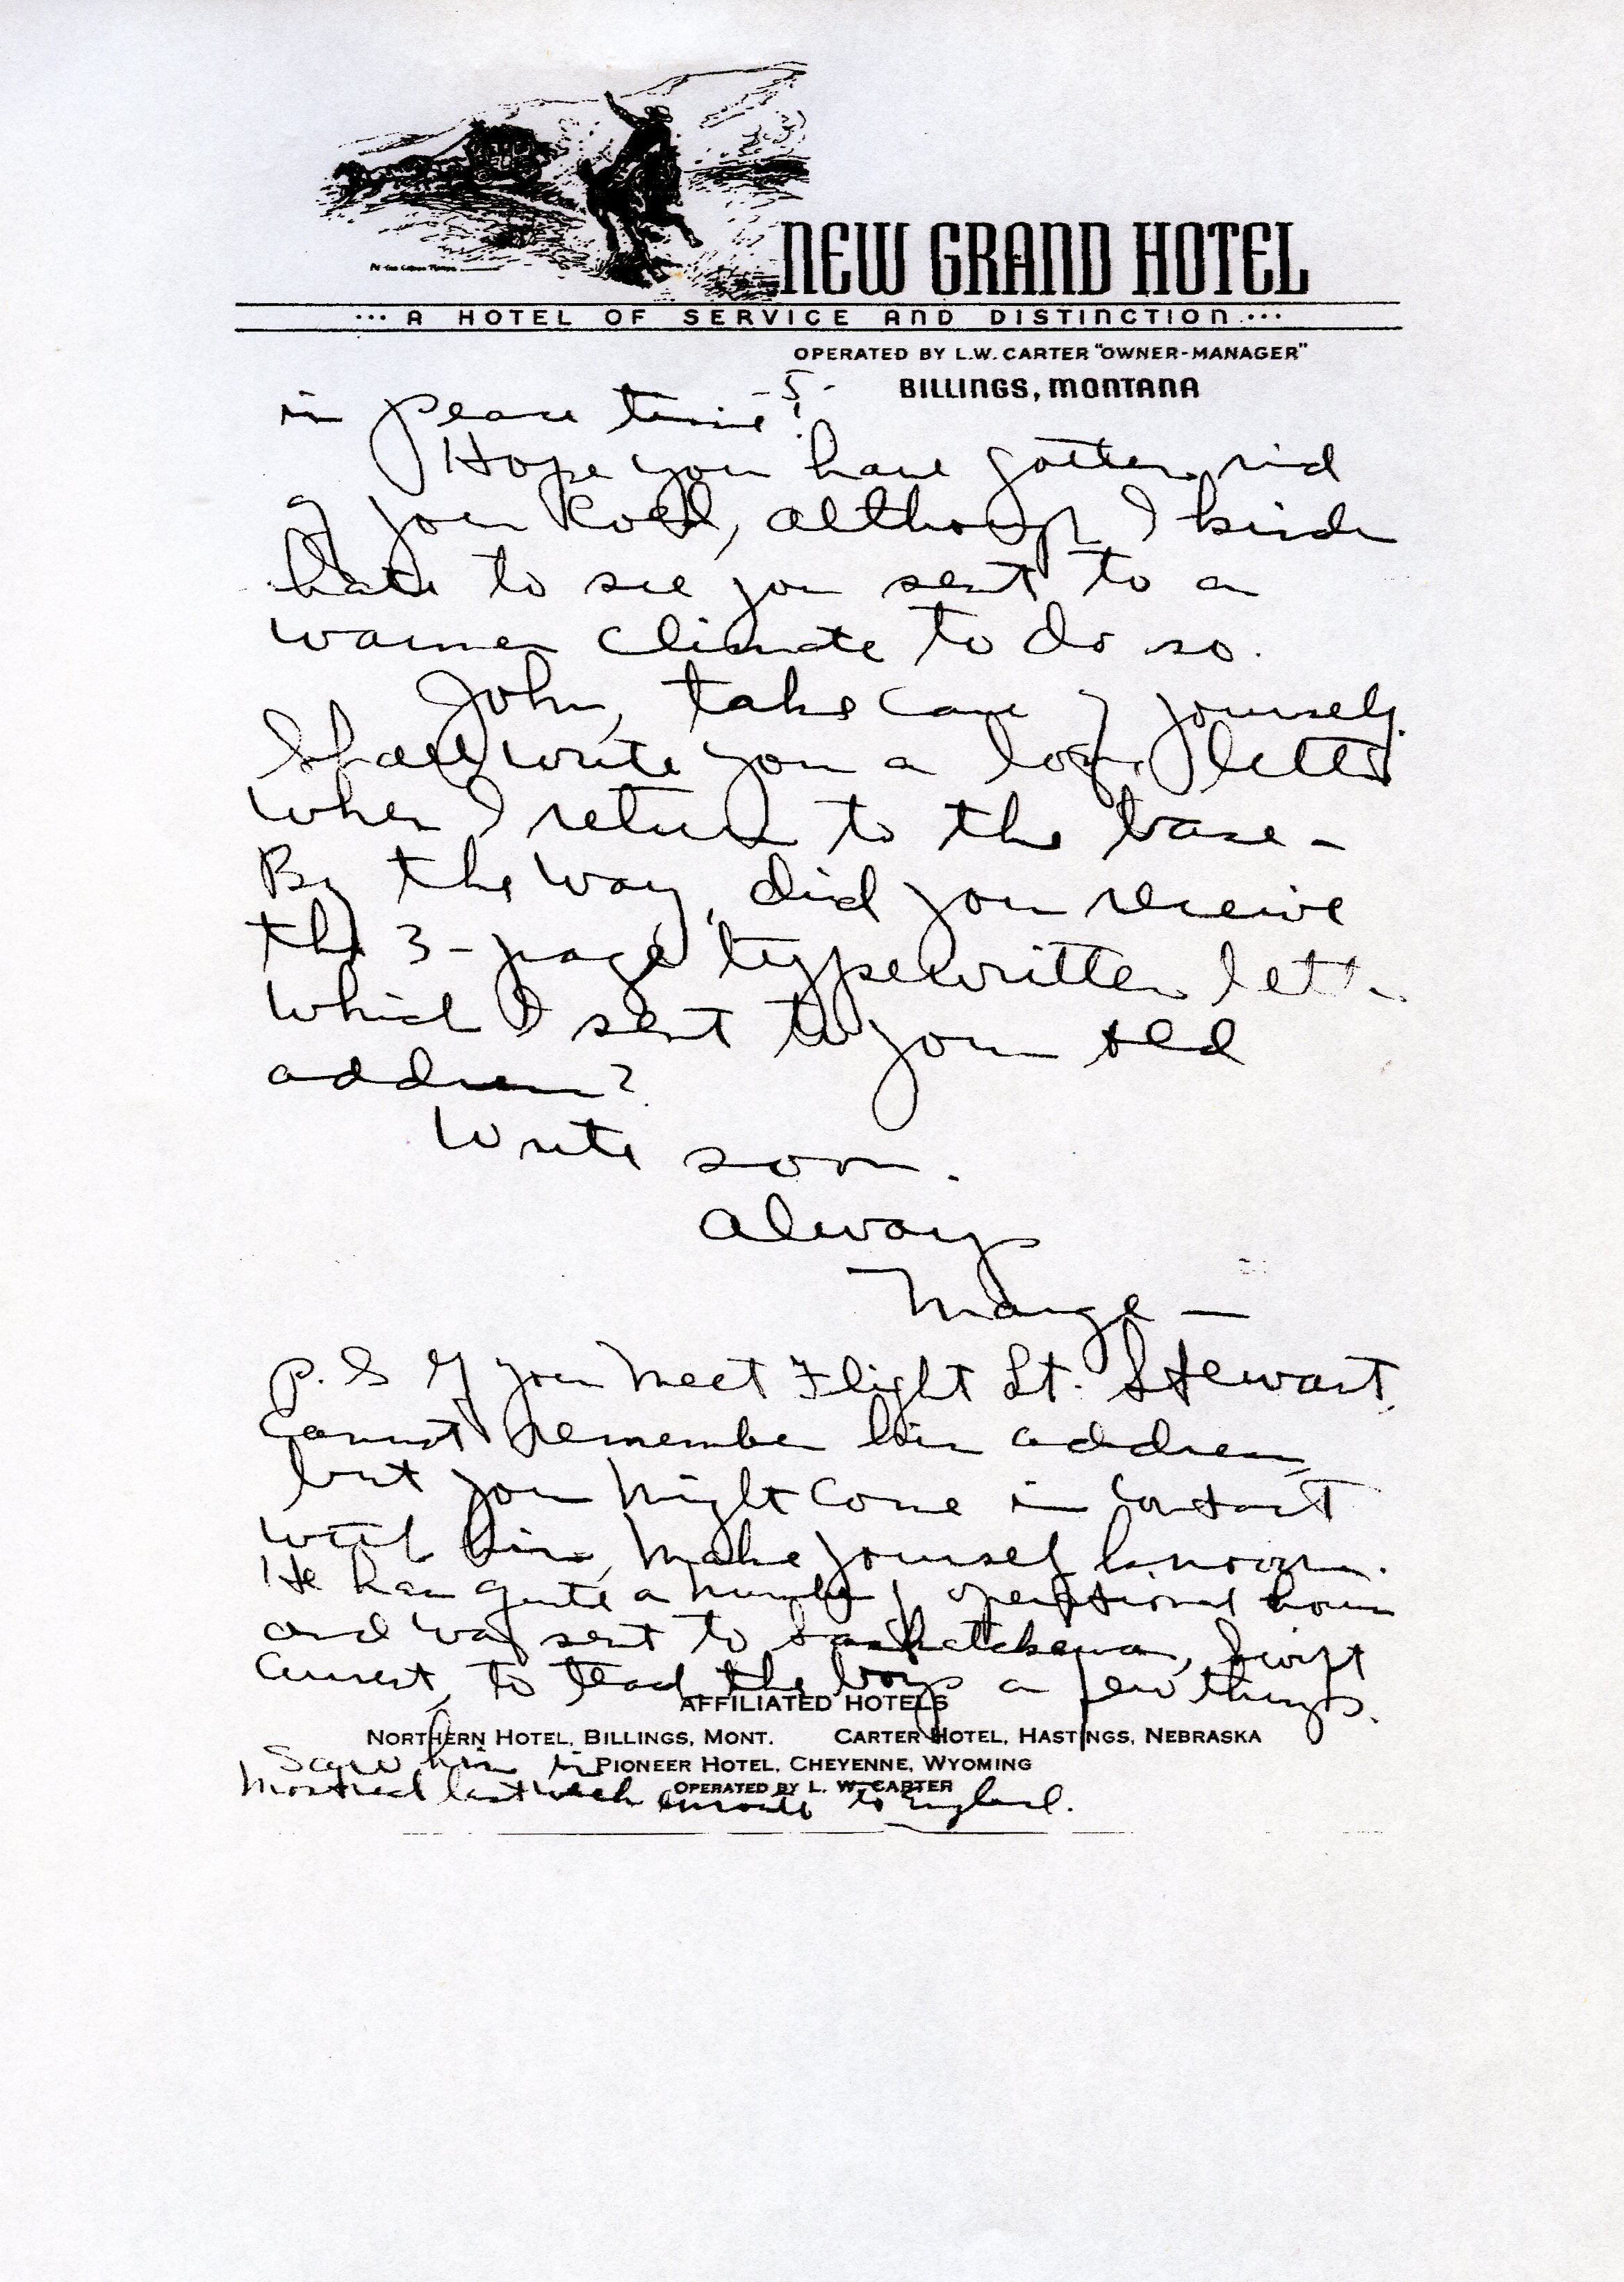 NEW GRAND HOTEL
... A HOTEL OF SERVICE AND DISTINCTION ...
OPERATED BY L.W. CARTER "OWNER-MANAGER"
BILLINGS, MONTANA
-5-
in peace time!
Hope you have gotten rid
of your Kold, although I kinda
hate to see you sent to a
warmer climate to do so.
John, take care of yourself.
Shall write you a long letter
when I return to the base -
By the way, did you receive
the 3-page typewritten
which I sent to your old
address?
Write soon.
Always
Marge —
P.S If you meet Flight Lt. Stewart,
Cannot remember his address,
but you might come in contact
with him, make yourself known.
He has quite a number of operational hours
and was sent to Saskatchewan, Swift
Current, to teach the boys a few things.
Saw him in
Montreal last week enroute to England.
AFFILIATED HOTELS
NORTHERN HOTEL, BILLINGS, MONT. CARTER HOTEL, HASTINGS, NEBRASKA
PIONEER HOTEL, CHEYENNE, WYOMING
OPERATED BY L. W. CARTER